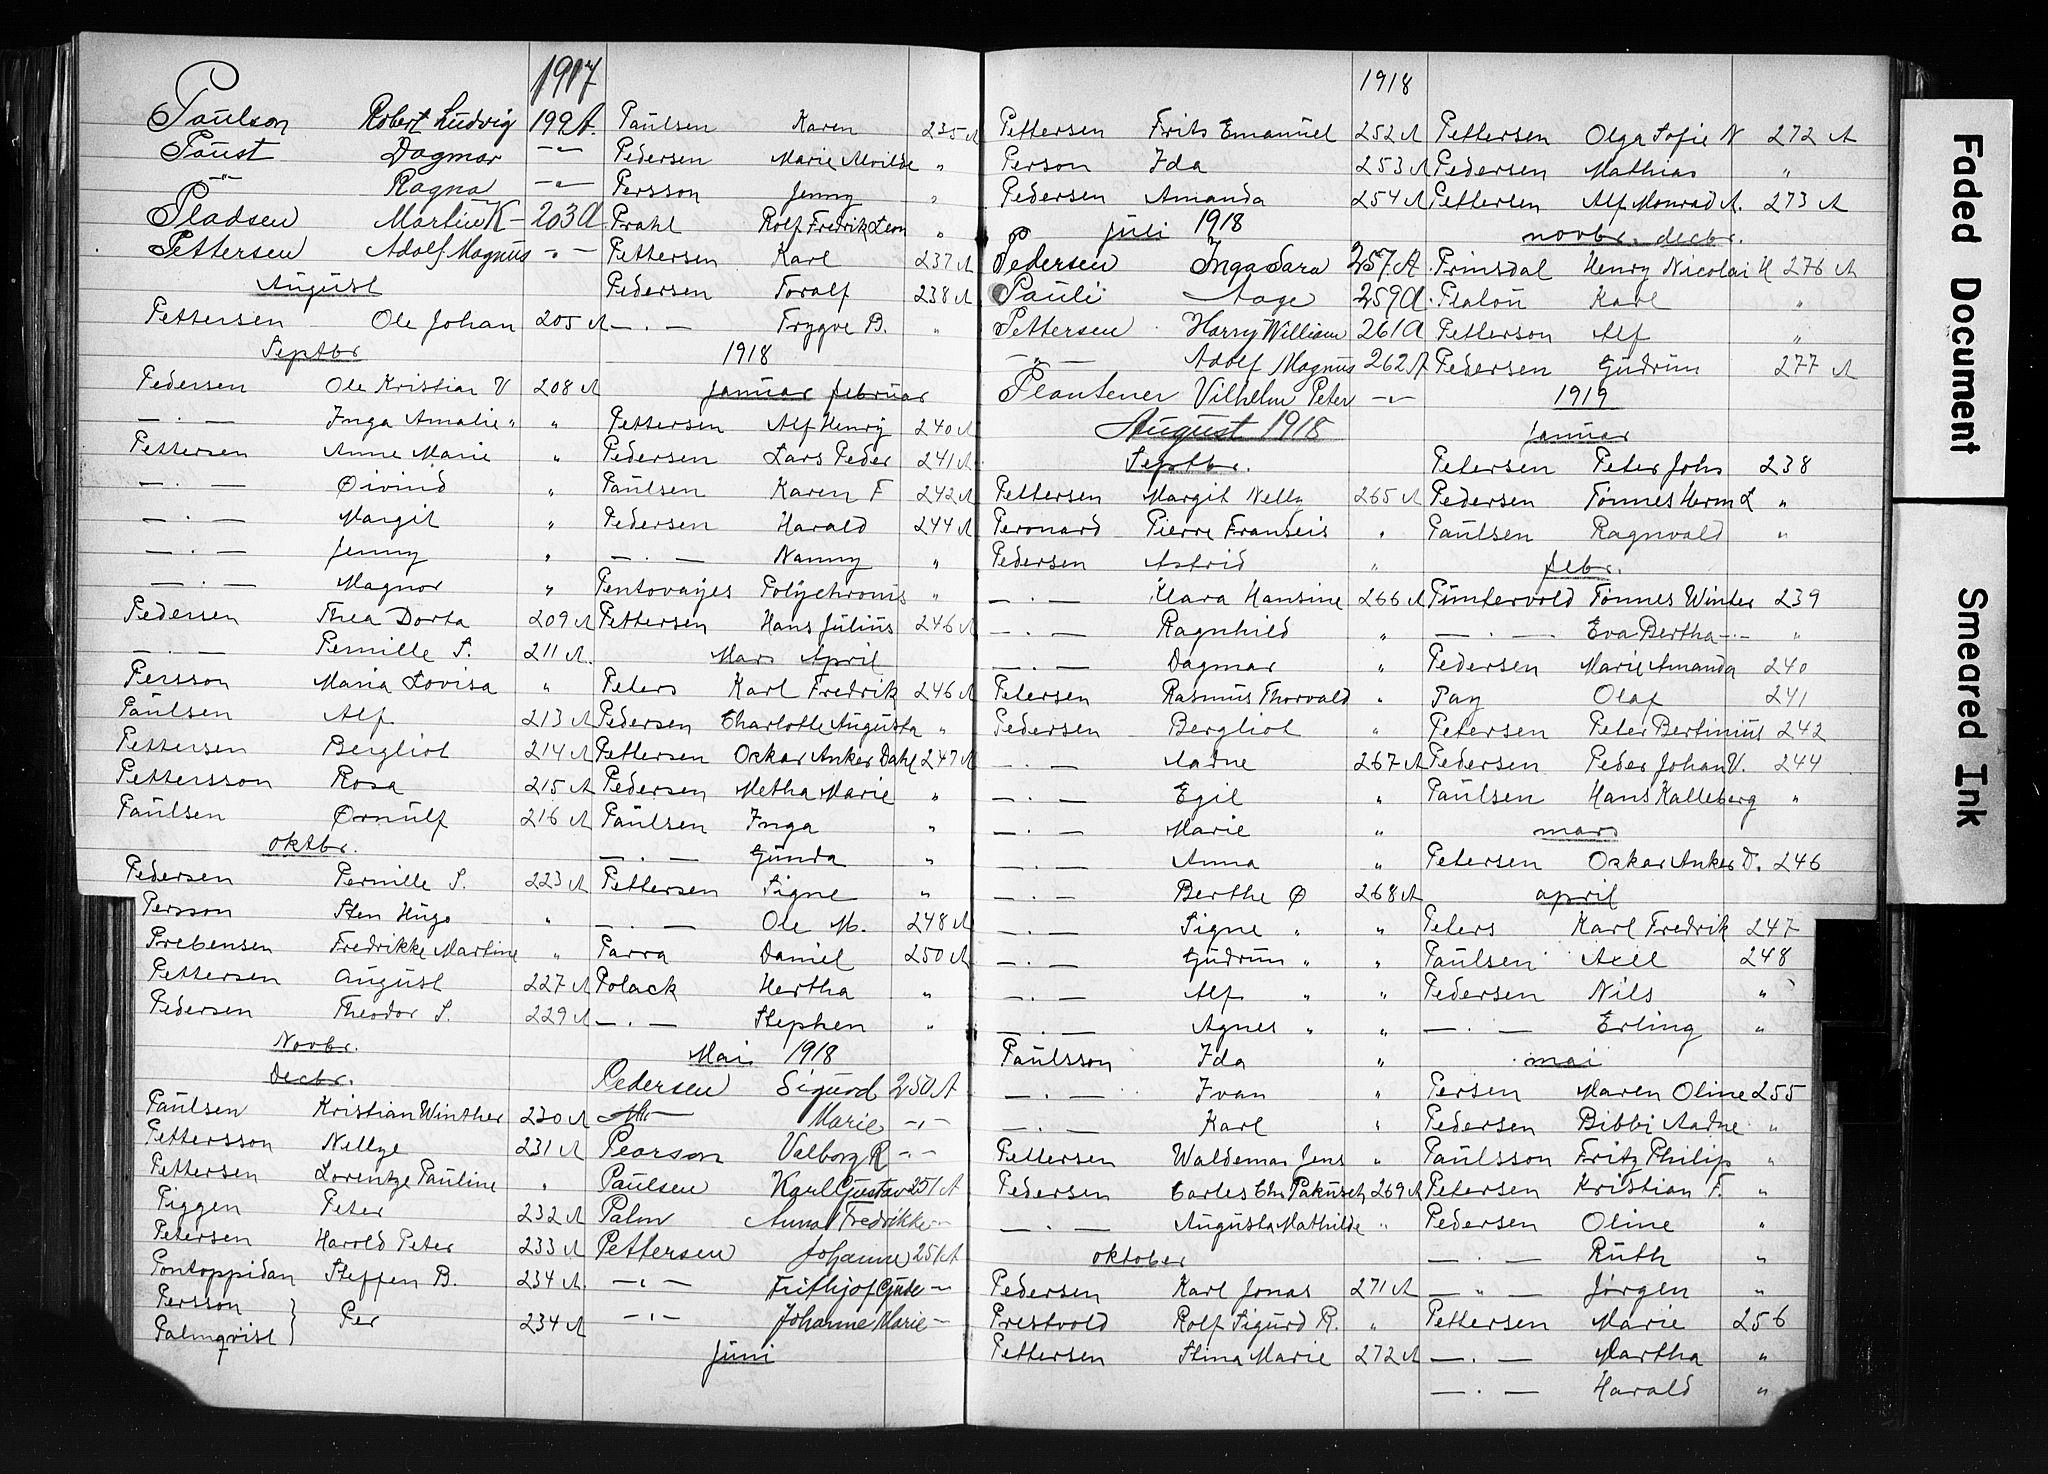 1917
Paulson Robert Ludvig 199 A.
Paust Dagmar -"-
-"- Ragna -"-
Pladsen Martin K- 203 A
Pettersen Adolf Magnus -"-
August
Pettersen Ole Johan 205 A
Septbr
Pedersen Ole Kristian V 208 A
— . — Inga Amalie " "
Pettersen Anne Marie "
— . — Øivind "
— . — Margit "
— . — Jenny "
— . — Magnor "
Pedersen Thea Dorta 209 A
— . — Pernille S. 211 A.
Persson Maria Lovisa "
Paulsen Alf 213 A
Pettersen Bergliot 214 A
Pettersson Rosa 215 A
Paulsen Ørnulf 216 A
oktbr.
Pedersen Pernille S. 223 A
Persson Sten Hugo "
Prebensen Fredrikke Martine "
Pettersen August 227 A
Pedersen Theodor S. 229 A
Novbr.
Decbr.
Paulsen Kristian Winther 230 A
Pettersson Nellye 231 A
Pettersen Lorentze Pauline "
Piggen Peter 232 A
Petersen Harold Peter 233 A
Pontoppidan Steffen B. 234 A.
Persson } Per 234 A
Palmqvist }
Paulsen Karen 235 A
Pedersen Marie Alvilde "
Persson Jenny "
Prahl Rolf Fredrik Leon "
Pettersen Karl 237 A
Pedersen Toralf 238 A
— . — Trygve B. "
1918
Januar februar
Pettersen Alf Henry 240 A
Pedersen Lars Peder 241 A
Paulsen Karen F 242 A
Pedersen Harald 244 A
— . — Nanny "
Pentovayes Polychronis "
Pettersen Hans Julius 246 A
Mars April
Peters Karl Fredrik 246 A
Pedersen Charlotte Augusta "
Pettersen Oskar Anker Dahl 247 A
Pedersen Metha Marie "
Paulsen Inga "
— . — Gunda "
Pettersen Signe "
— . — Ole M. 248 A
Parra Daniel 250 A
Polack Hertha "
— . — Stephen "
Mai 1918
Pedersen Sigurd 250 A
Marie -"-
Pearson Valborg R -"-
Paulsen Karl Gustav 251 A
Palm Anna Fredrikke -"-
Pettersen Johanne 251 A
— " — Frithjof Gude -"-
— " — Johanne Marie -
Juni
1918
Pettersen Frits Emanuel 252 A
Person Ida 253 A
Pedersen Amanda 254 A
juli 1918
Pedersen Inga Sara 257 A.
Pauli Aage 259 A.
Pettersen Harry William 261 A
— " — Adolf Magnus 262 A
Plantener Vilhelm Peter -"-
August 1918
Septbr.
Pettersen Margit Nelly 265 A
Peronard Pierre Franseis "
Pedersen Astrid "
— . — Klara Hansine 266 A
— . — Ragnhild "
— . — Dagmar "
Petersen Rasmus Thorvald "
Pedersen Bergliot "
— . — Aadne 267 A
— . — Egil "
— . — Marie "
— . — Anna "
— . — Berthe Ø 268 A
— . — Signe " "
— . — Gudrun " "
— . — Alf " "
— . — Agnes " "
Paulsson Ida "
— . — Ivan "
— . — Karl "
Pettersen Waldemar Jens "
Pedersen Carles Chr. Pakusch 269 A
— . — Augusta Mathilde "
oktober
Pedersen Karl Jonas 271 A
Prestvold Rolf Sigurd R. "
Pettersen Stina Marie 272 A
Pettersen Olga Sofie N 272 A
Pedersen Mathias "
Pettersen Alf Monrad A. 273 A
novbr. decbr.
Prinsdal Henry Nicolai H 276 A
Platou Karl "
Petterson Alf "
Pedersen Gudrun 277 A
1919
Januar
Petersen Peter Johs 238
Pedersen Tønnes Herm L "
Paulsen Ragnvald "
febr.
Puntervold Tønnes Winter 239
— . — Eva Bertha -.- "
Pedersen Marie Amanda 240
Pay Olaf 241
Petersen Peter Bertinius 242
Pedersen Peder Johan V. 244
Paulsen Hans Kalleberg "
mars
Petersen Oskar Anker D. 246
april
Peters Karl Fredrik 247
Paulsen Axel 248
Pedersen Nils "
— . — Erling "
mai
Persen Maren Oline 255
Pedersen Bibbi Aadne "
Paulsson Fritz Philip "
Petersen Kristian F. "
Pedersen Oline "
— . — Ruth "
— " — Jørgen "
Pettersen Marie 256
— . — Martha "
— . — Harald "
Faded Document
Smeared Ink